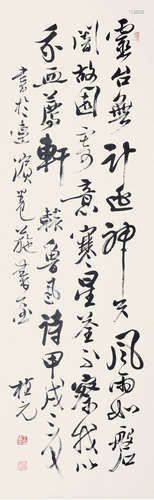 靈台無計逃神矢風雨如磐
闇故園寄意寒星荃不察我以
我血薦軒轅 魯迅詩甲戌之
書於連濱 書 植元